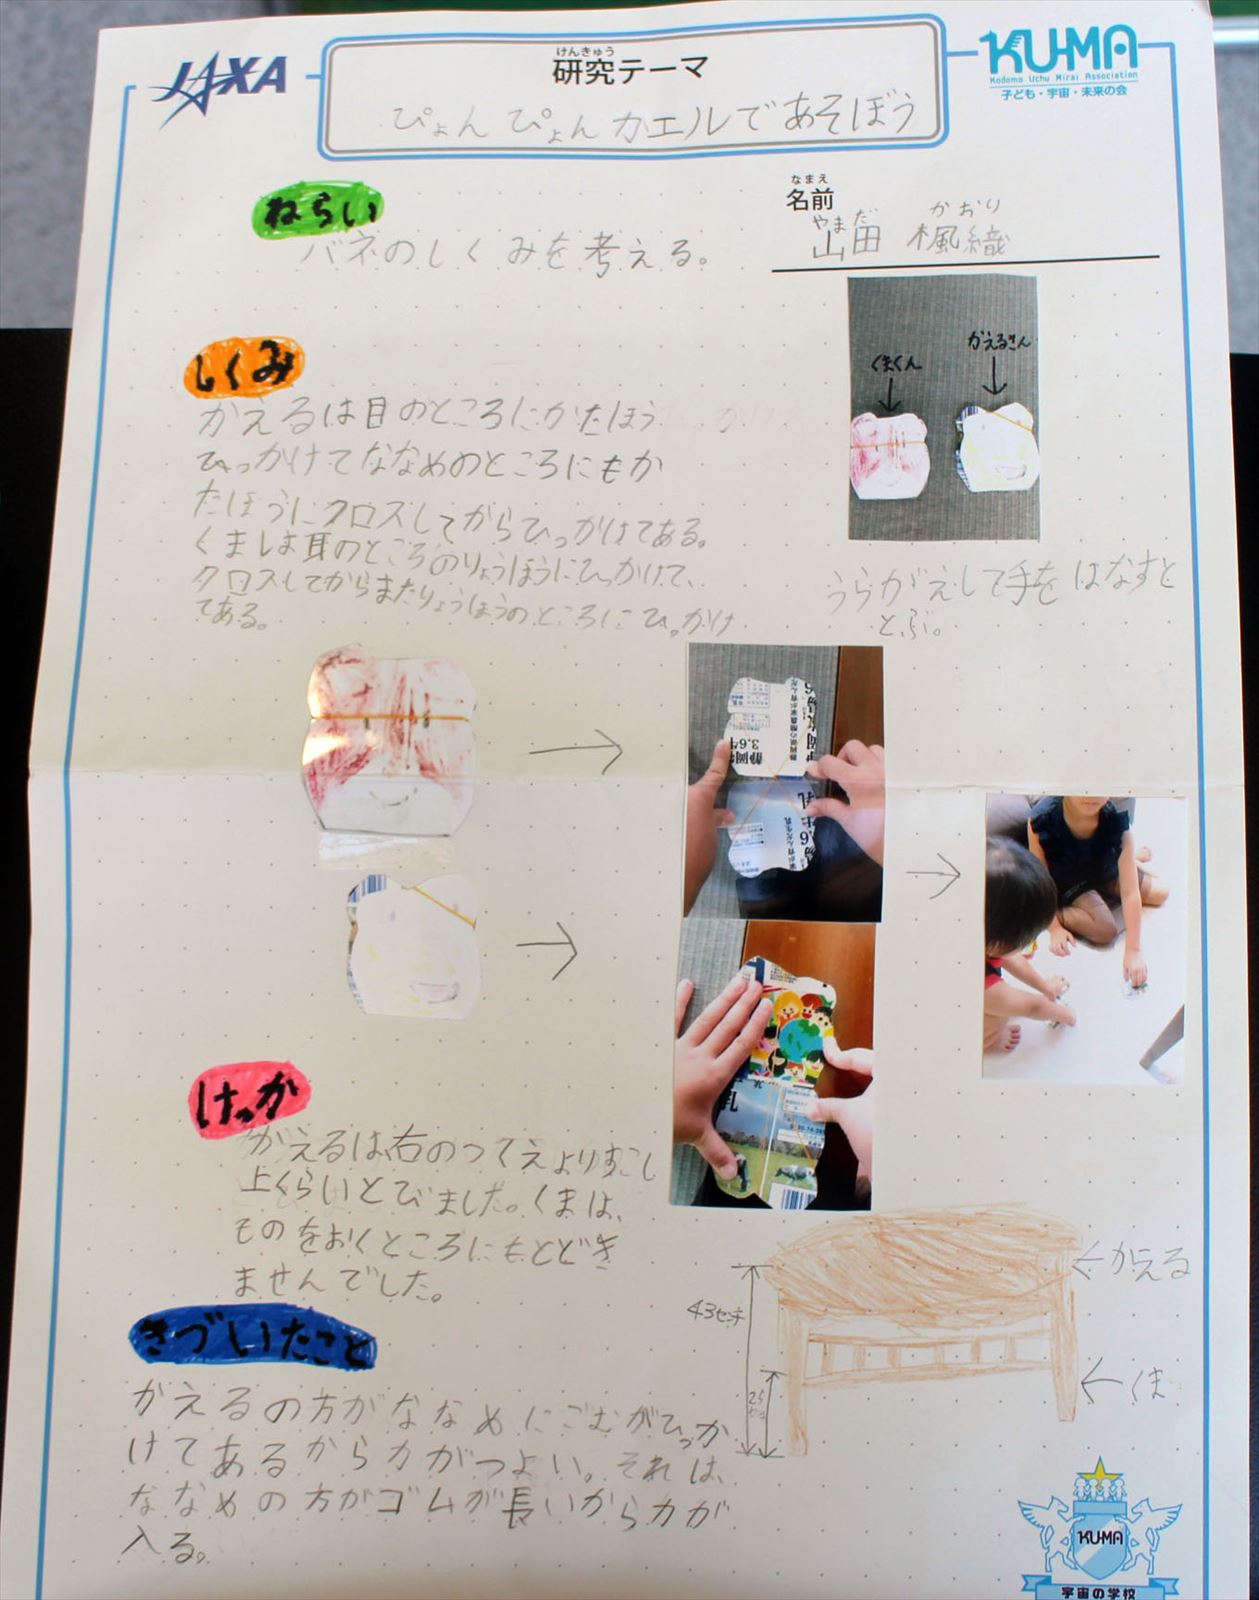 JAXA
けんきゅう
研究テーマ
ぴょんぴょんカエルであそぼう
KU-MA
Kodomo Uchu Mirai Association
子ども・宇宙・未来の会
なまえ
名前
やまだ かおり
山田 楓織
ねらい
バネのしくみを考える。
しくみ
かえるは目のところにかたほう
ひっかけてななめのところにもか
たほうにクロスしてからひっかけてある。
くまは耳のところのりょうほうにひっかけて、
クロスしてからまたりょうほうのところにひっかけ
てある。
くまくん
かえるさん
うらがえして手をはなすと
とぶ。
けっか
かえるは、右のつくえよりすこし
上くらいとびました。くまは、
ものをおくところにもとどき
ませんでした。
43センチ
25
←かえる
←くま
きづいたこと
かえるの方がななめにごむがひっか
けてあるから力がつよい。それは、
ななめの方がゴムが長いから力が
入る。
KU-MA
宇宙の学校